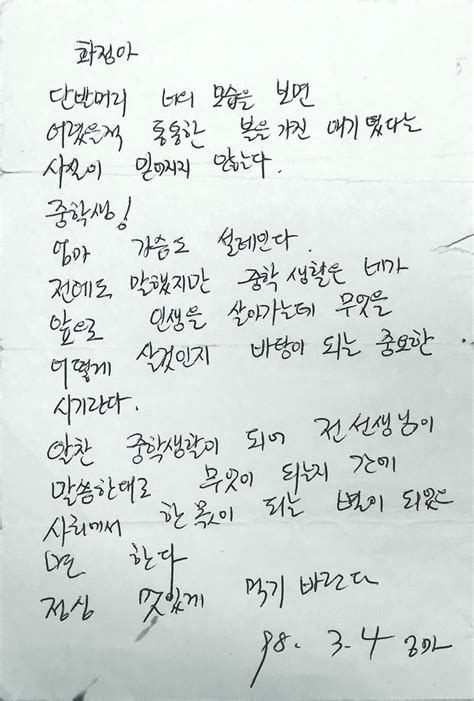 화정아
단발머리 너의 모습을 보면
어렸을적 통통한 볼을 가진 애기였다는
사실이 믿어지지 않는다.
중학생!
엄마 가슴도 설레인다.
전에도 말했지만 중학생활은 네가
앞으로 인생을 살아가는데 무엇을
어떻게 살것인지 바탕이 되는 중요한
시기란다.
알찬 중학생활이 되어 전선생님이
말씀한대로 무엇이 되는지 간에
사회에서 한 몫이 되는 별이 되었으
면 한다
점심 맛있게 먹기 바란다
98. 3. 4 엄마